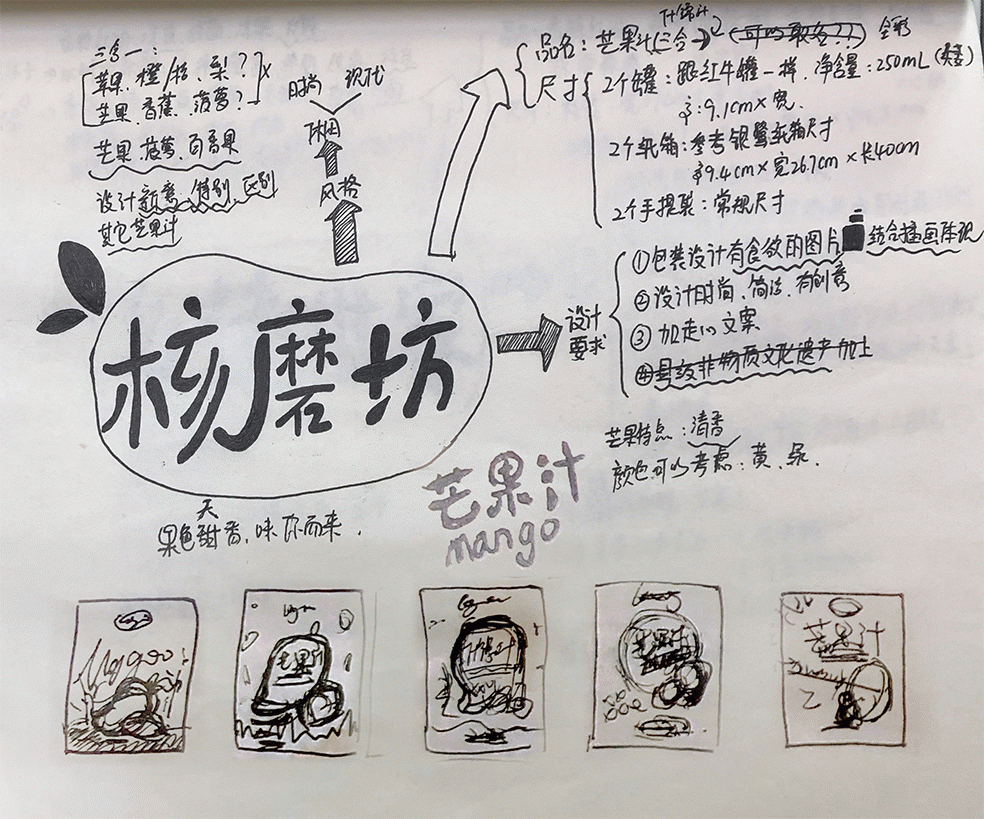 三合一：
苹果、橙/桔、梨？
芒果、香蕉、菠萝？
芒果、菠萝、百香果
设计新意、特别、区别
其它芒果汁
时尚 现代
休闲
风格
什锦汁
品名：芒果汁(三合一)
尺寸
2个罐：跟红牛罐一样，净含量：250mL
高：9.1cm×宽.
2个纸箱：参考银鹭纸箱尺寸
高9.4cm×宽26.7cm×长40cm
2个手提袋：常规尺寸
核磨坊
设计
要求
①包装设计有食欲的图片 结合插画体现
②设计时尚、简洁、有创意
③加走心文案
④县级非物质文化遗产加上
芒果特点：清香
颜色可以考虑：黄、绿.
芒果汁
mango
天
果色甜香，味你而来.
logo
Mango
logo
芒果汁
logo
什锦汁
芒果汁
芒果汁